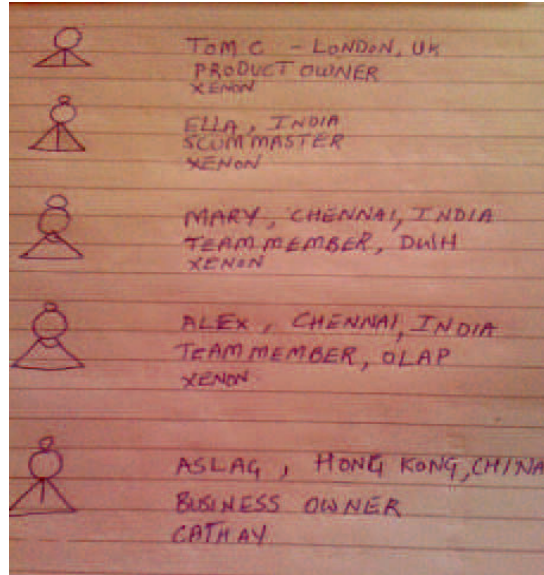 TOM C - LONDON, UK
PRODUCT OWNER
XENON
ELLA, INDIA
SCUM MASTER
XENON
MARY, CHENNAI, INDIA
TEAM MEMBER, DWH
XENON
ALEX, CHENNAI, INDIA
TEAM MEMBER, OLAP
XENON
ASLAG, HONG KONG, CHINA
BUSINESS OWNER
CATHAY